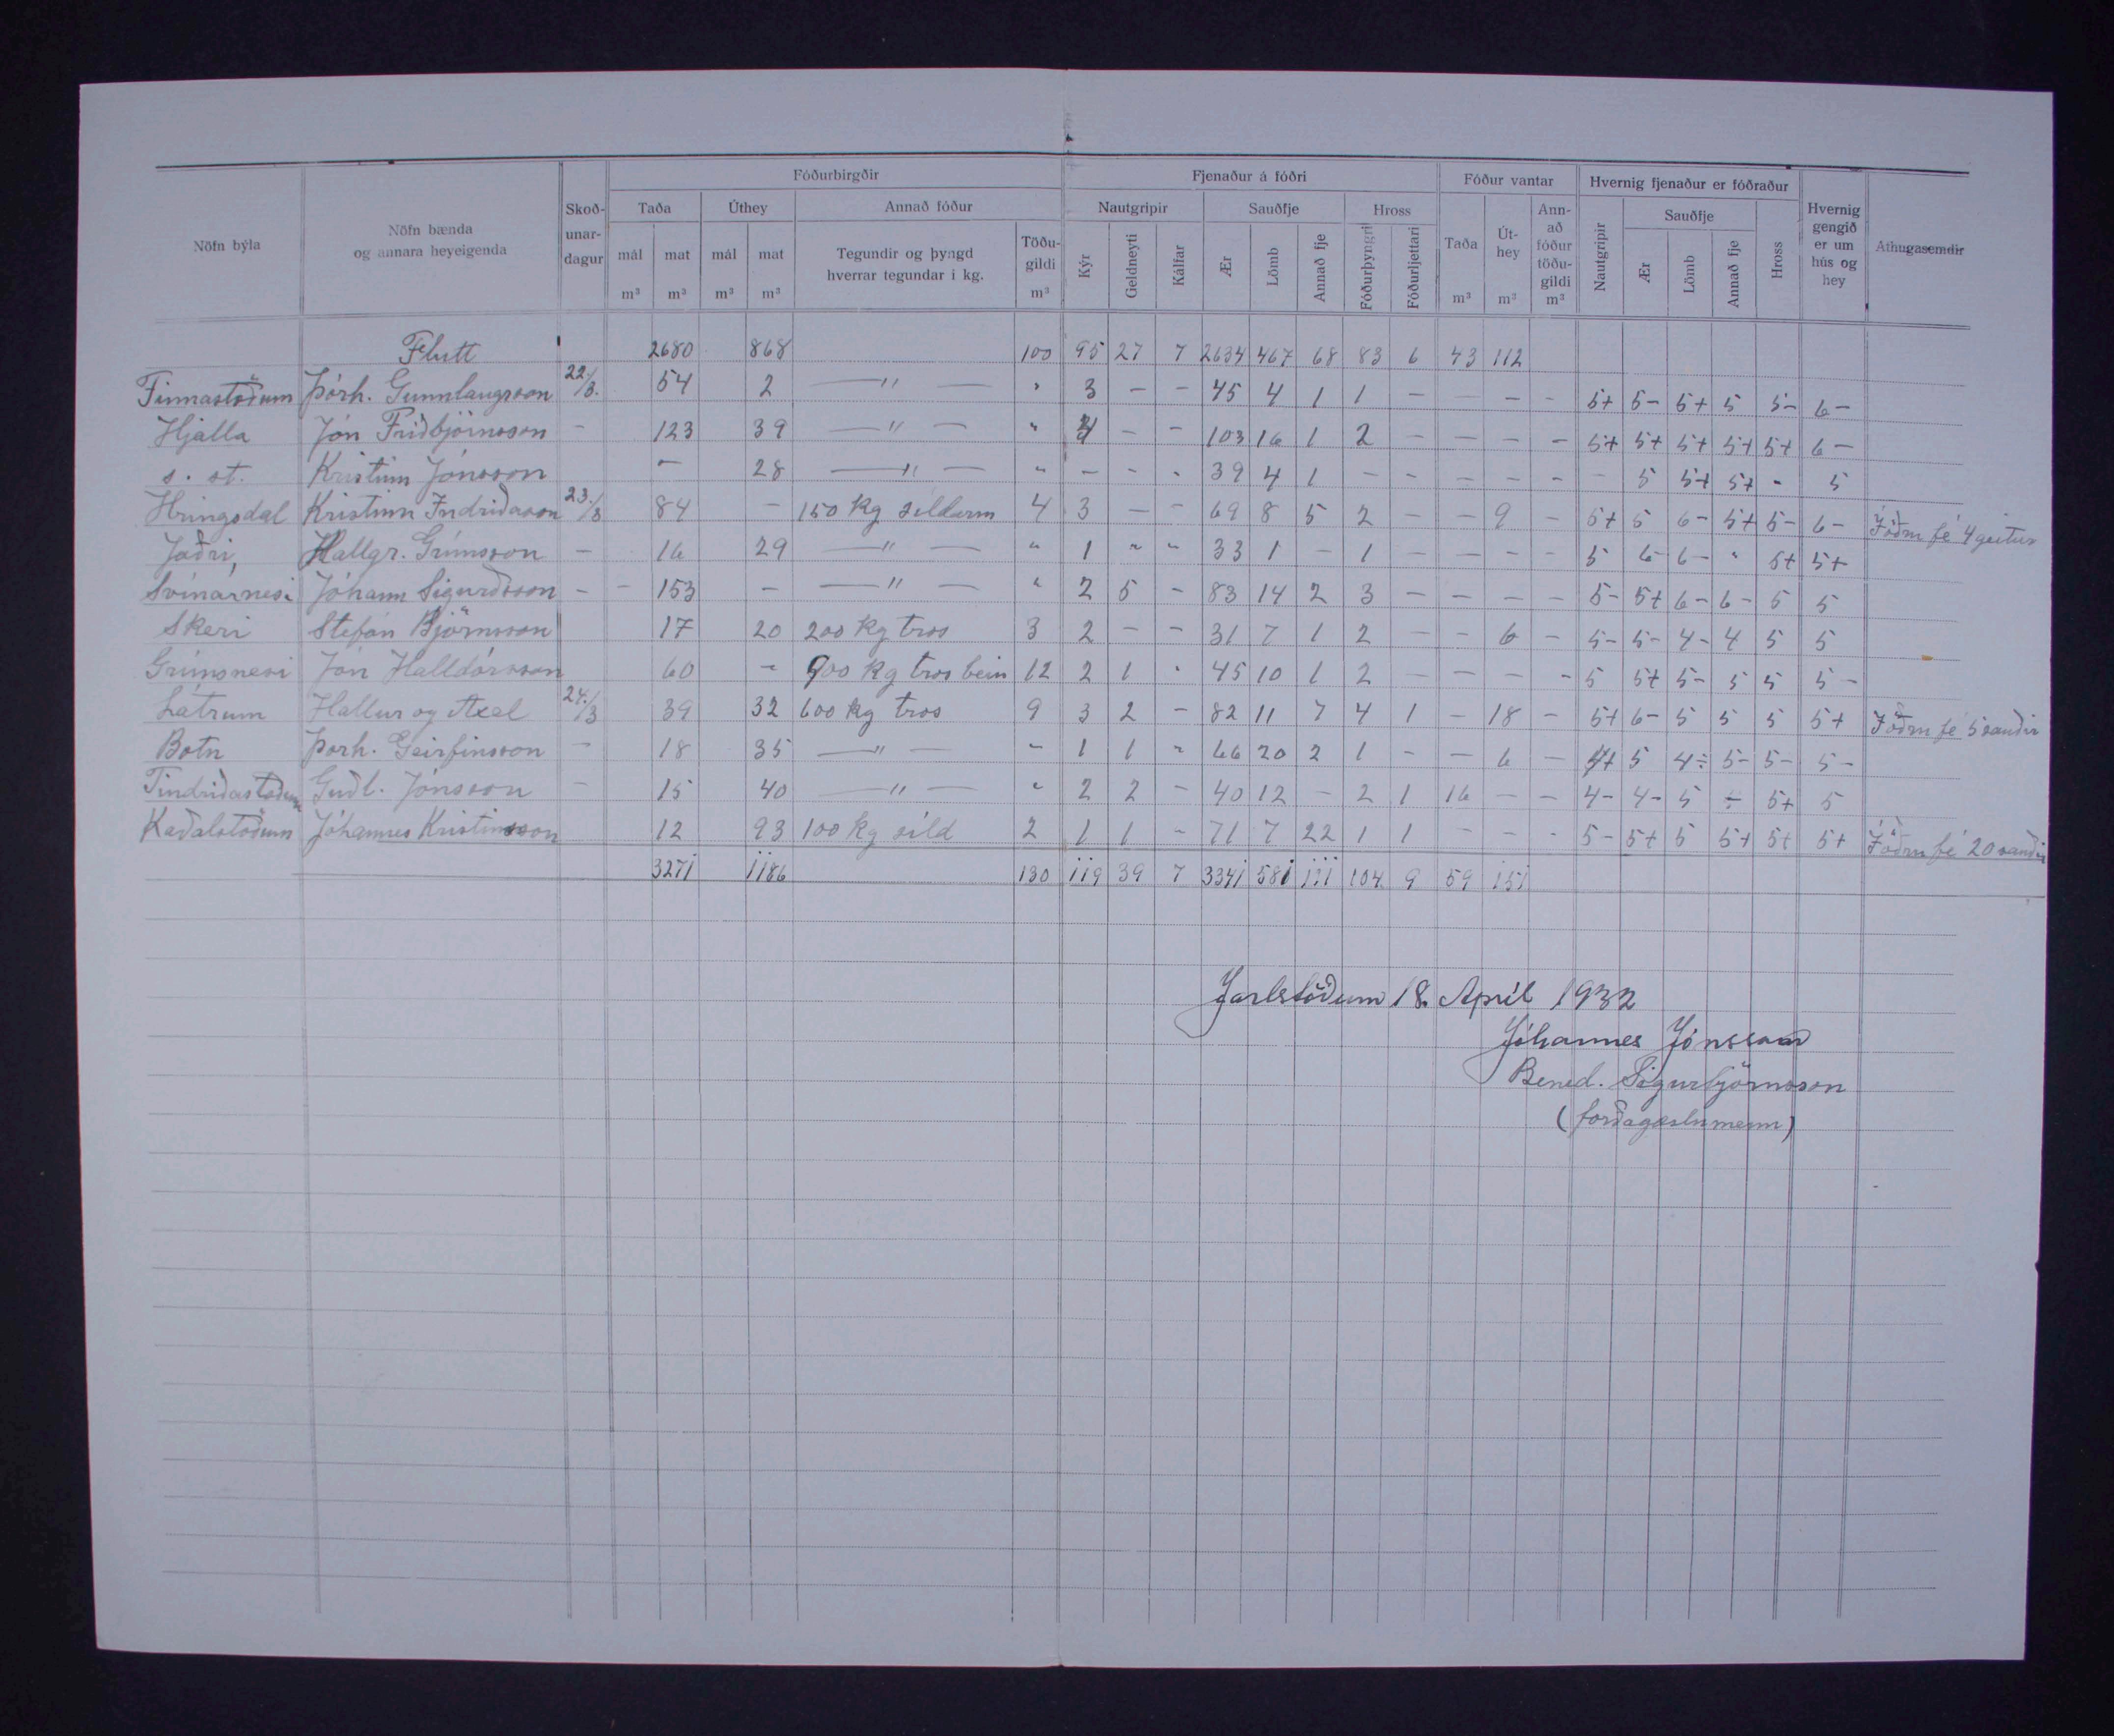 Fóðurbirgðir Fjenaður á fóðri Fóður vantar Hvernig fjenaður er fóðraður
Nöfn býla Nöfn bænda og annara heyeigenda Skoð-unar-dagur Taða Úthey Annað fóður Nautgripir Sauðfje Hross Taða Út-hey Ann-að fóður töðu-gildi Nautgripir Sauðfje Hross Hvernig gengið er um hús og hey Athugasemdir
mál mat mál mat Tegundir og þyngd hverrar tegundar í kg. Töðu-gildi Kýr Geldneyti Kálfar Ær Lömb Annað fje Fóðurþyngri Fóðurljettari Ær Lömb Annað fje
m³ m³ m³ m³ m³ m³ m³ m³
Flutt 2680 868 100 95 27 7 2634 467 68 83 6 43 112
Finnastöðum Þórh. Gunnlaugsson 22/3. 54 2 — " — " 3 - - 45 4 1 1 - - - - 5+ 5- 5+ 5 5- 6-
Hjalla Jón Friðbjörnsson - 123 39 — " — " - - 103 16 1 2 - - - - 5+ 5+ 5+ 5+ 5+ 6-
s. st. Kristinn Jónsson - 28 — " — " - - - 39 4 1 - - - - - - 5 5+ 5+ - 5
Hringsdal Kristinn Indriðason 23./3 84 - 150 kg síldarm 4 3 - - 69 8 5 2 - - 9 - 5+ 5 6- 5+ 5- 6- Í öðru fé 4 geitur
Jaðri, Hallgr. Grímsson - 16 29 — " — " 1 " " 33 1 - 1 - - - - 5 6- 6- " 5+ 5+
Svínárnesi Jóhann Sigurðsson - - 153 - — " — " 2 5 - 83 14 2 3 - - - - 5- 5+ 6- 6- 5 5
Skeri Stefán Björnsson 17 20 200 kg tros 3 2 - - 31 7 1 2 - - 6 - 5- 5- 4- 4 5 5
Grímsnesi Jón Halldórsson 60 - 900 kg tros bein 12 2 1 " 45 10 1 2 - - - - 5 5+ 5- 5 5 5-
Látrum Hallur og Axel 24./3 39 32 600 kg tros 9 3 2 - 82 11 7 4 1 - 18 - 5+ 6- 5 5 5 5+ Í öðru fé 5 sauðir
Botn Þorh. Geirfinsson - 18 35 — " — " 1 1 " 66 20 2 1 - - 6 - 4+ 5 4÷ 5- 5- 5-
Tindriðastöðum Guðl. Jónsson - 15 40 — " — " 2 2 - 40 12 - 2 1 16 - - 4- 4- 5 ÷ 5+ 5
Kaðalstöðum Jóhannes Kristinsson 12 93 100 kg síld 2 1 1 - 71 7 22 1 1 - - - 5- 5+ 5 5+ 5+ 5+ Í öðru fé 20 sauðir
3271 1186 130 119 39 7 3341 581 111 104 9 59 151
Jarlstöðum 18. Apríl 1932
Jóhannes Jónsson
Bened. Sigurbjörnsson
(forðagæslumenn)